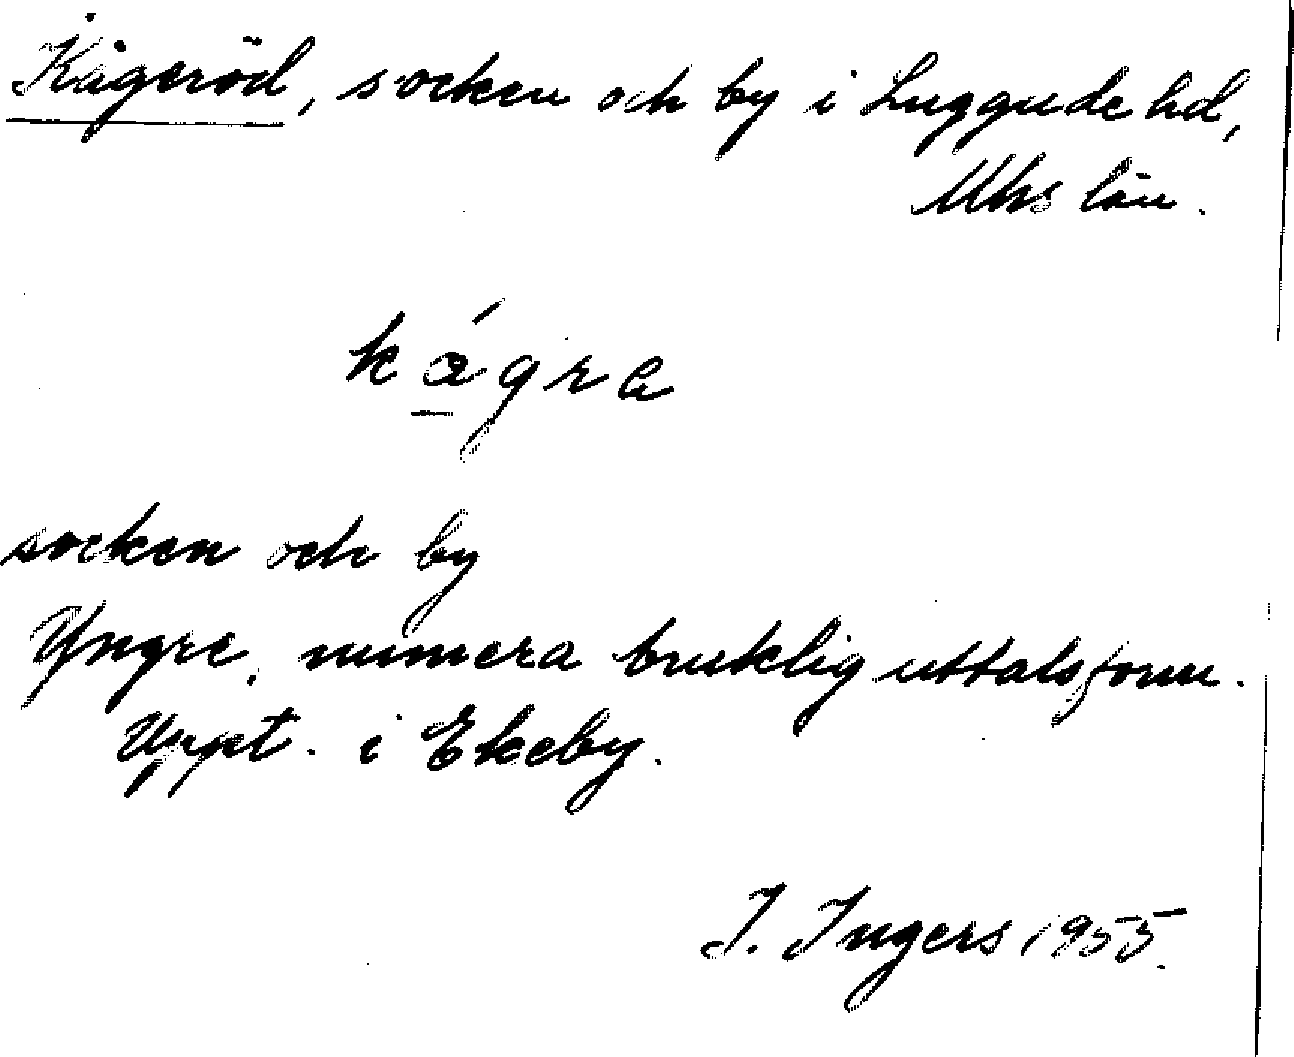 Kågeröd, socken och by i Luggude hd,
Mhs län.
kágra
socken och by
Yngre, numera bruklig uttalsform.
Uppt. i Ekeby.
I. Ingers 1955.